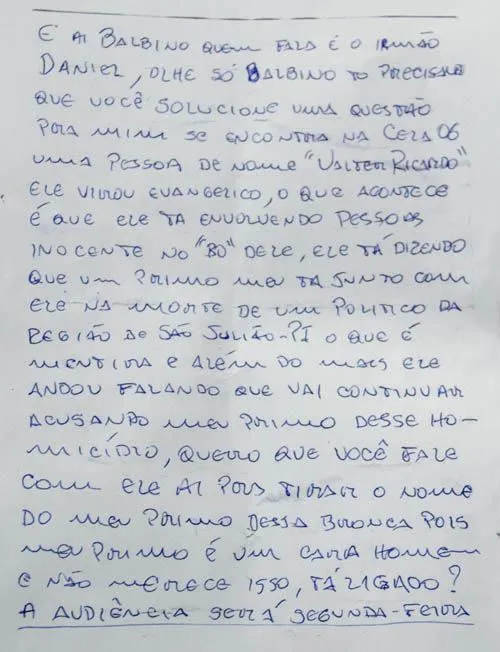 E AI BALBINO QUEM FALA É O IRMÃO
DANIEL, OLHE SÓ BALBINO TO PRECISANDO
QUE VOCÊ SOLUCIONE UMA QUESTÃO
PRA MIM SE ENCONTRA NA CELA 06
UMA PESSOA DE NOME "VALTER RICARDO"
ELE VIROU EVANGELICO, O QUE ACONTECE
É QUE ELE TA ENVOLVENDO PESSOAS
INOCENTE NO "BO" DELE, ELE TÁ DIZENDO
QUE UM PRIMO MEU TA JUNTO COM
ELE NA MORTE DE UM POLITICO DA
REGIÃO DE SÃO JULIÃO-PI O QUE É
MENTIRA E ALÉM DO MAIS ELE
ANDOU FALANDO QUE VAI CONTINUAR
ACUSANDO MEU PRIMO DESSE HO-
MICÍDIO, QUERO QUE VOCÊ FALE
COM ELE AI PRA TIRAR O NOME
DO MEU PRIMO DESSA BRONCA POIS
MEU PRIMO É UM CARA HOMEM
E NÃO MERECE ISSO, TÁ LIGADO?
A AUDIÊNCIA SERÁ SEGUNDA-FEIRA